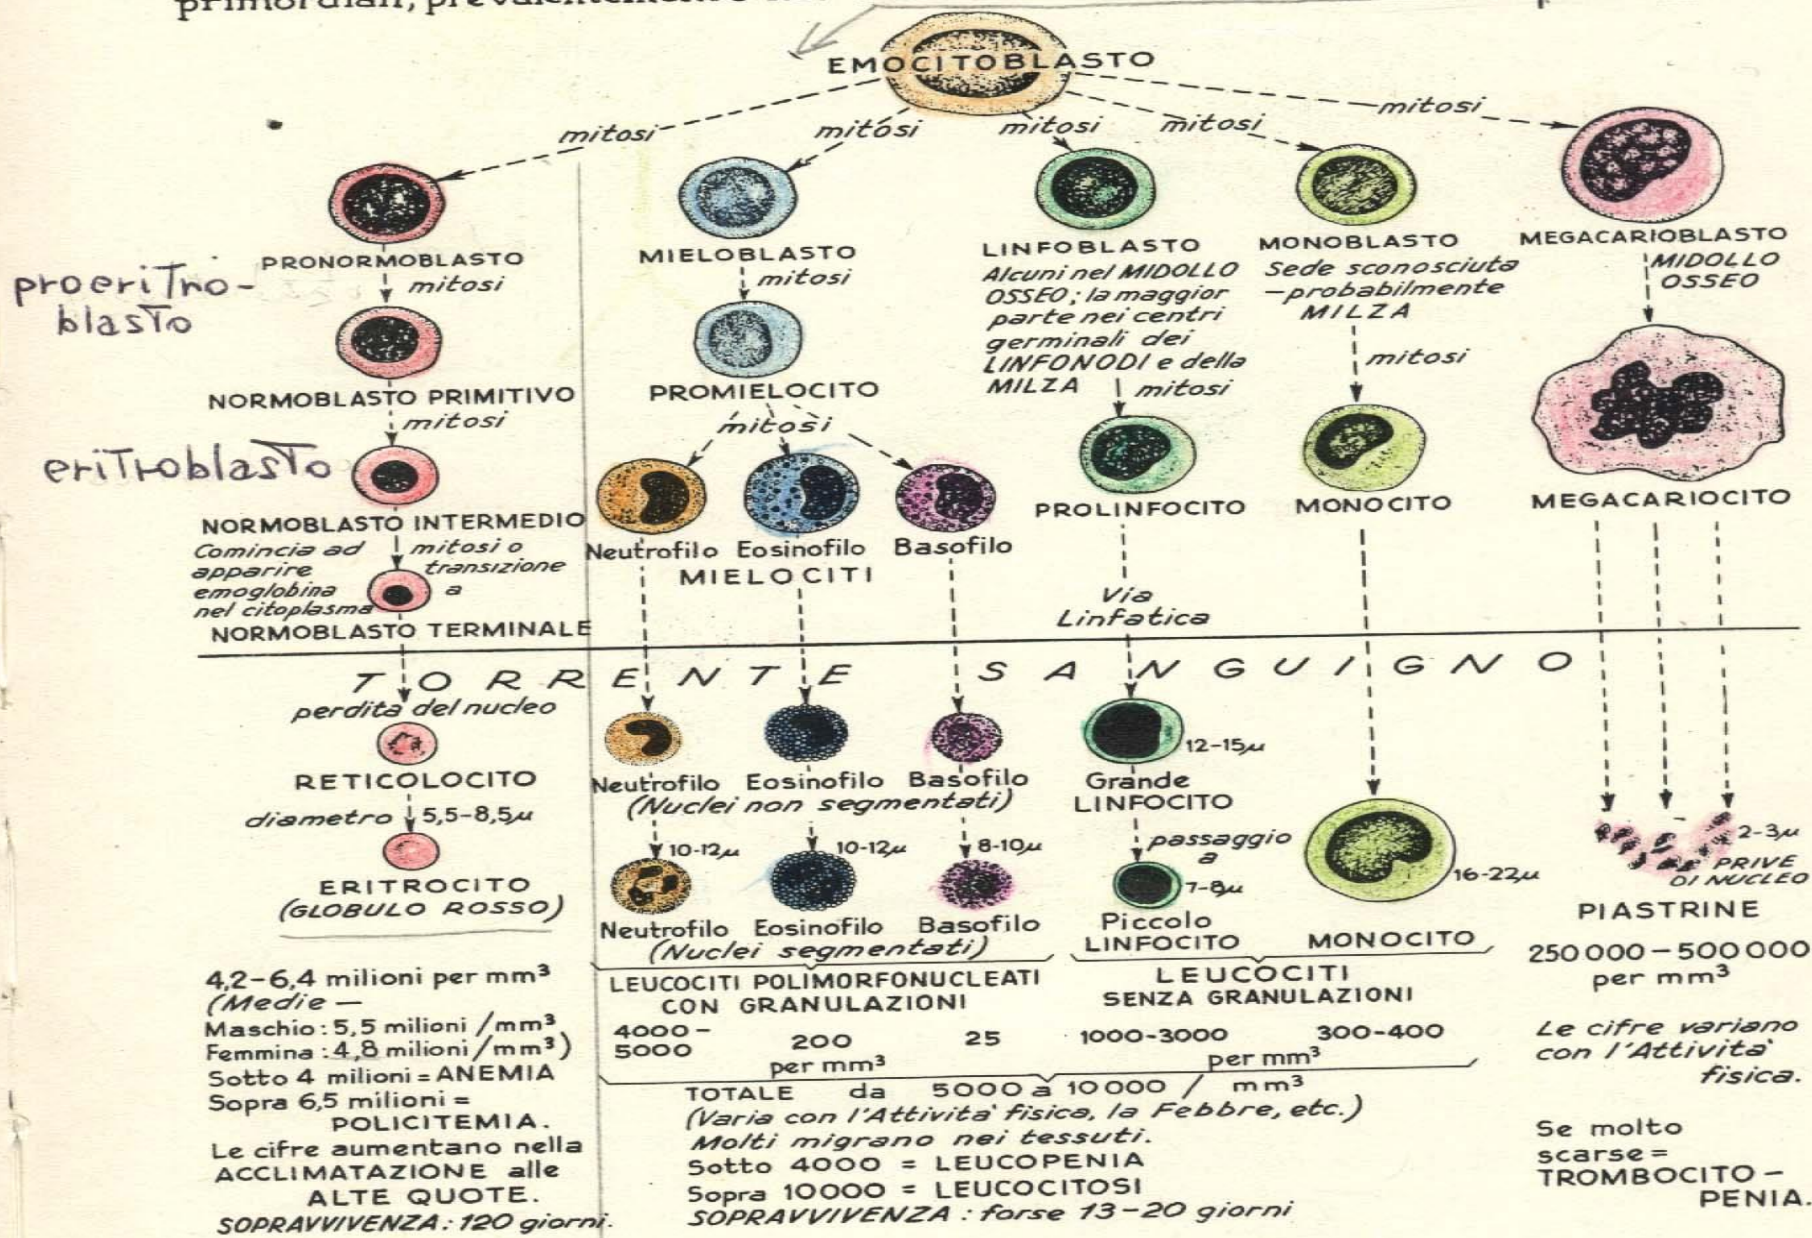 primordiali, prevalentemente
EMOCITOBLASTO
mitosi
mitosi
mitosi
mitosi
mitosi
PRONORMOBLASTO
mitosi
proeritro-
blasto
NORMOBLASTO PRIMITIVO
mitosi
eritroblasto
NORMOBLASTO INTERMEDIO
Comincia ad
apparire
emoglobina
nel citoplasma
mitosi o
transizione
a
NORMOBLASTO TERMINALE
MIELOBLASTO
mitosi
PROMIELOCITO
mitosi
Neutrofilo Eosinofilo Basofilo
MIELOCITI
LINFOBLASTO
Alcuni nel MIDOLLO
OSSEO; la maggior
parte nei centri
germinali dei
LINFONODI e della
MILZA mitosi
PROLINFOCITO
Via
Linfatica
MONOBLASTO
Sede sconosciuta
-probabilmente
MILZA
mitosi
MONOCITO
MEGACARIOBLASTO
MIDOLLO
OSSEO
MEGACARIOCITO
TORRENTE SANGUIGNO
perdita del nucleo
RETICOLOCITO
diametro 5,5-8,5µ
ERITROCITO
(GLOBULO ROSSO)
4,2-6,4 milioni per mm³
(Medie —
Maschio: 5,5 milioni/mm³
Femmina: 4,8 milioni/mm³)
Sotto 4 milioni = ANEMIA
Sopra 6,5 milioni =
POLICITEMIA.
Le cifre aumentano nella
ACCLIMATAZIONE alle
ALTE QUOTE.
SOPRAVVIVENZA: 120 giorni.
Neutrofilo Eosinofilo Basofilo
(Nuclei non segmentati)
10-12µ 10-12µ 8-10µ
Neutrofilo Eosinofilo Basofilo
(Nuclei segmentati)
12-15µ
Grande
LINFOCITO
passaggio
a
7-8µ
Piccolo
LINFOCITO
16-22µ
MONOCITO
LEUCOCITI POLIMORFONUCLEATI
CON GRANULAZIONI
LEUCOCITI
SENZA GRANULAZIONI
4000-
5000
200
25
per mm³
1000-3000 300-400
per mm³
TOTALE da 5000 a 10000 / mm³
(Varia con l'Attività fisica, la Febbre, etc.)
Molti migrano nei tessuti.
Sotto 4000 = LEUCOPENIA
Sopra 10000 = LEUCOCITOSI
SOPRAVVIVENZA: forse 13-20 giorni
2-3µ
PRIVE
DI NUCLEO
PIASTRINE
250000-500000
per mm³
Le cifre variano
con l'Attività
fisica.
Se molto
scarse =
TROMBOCITO-
PENIA.